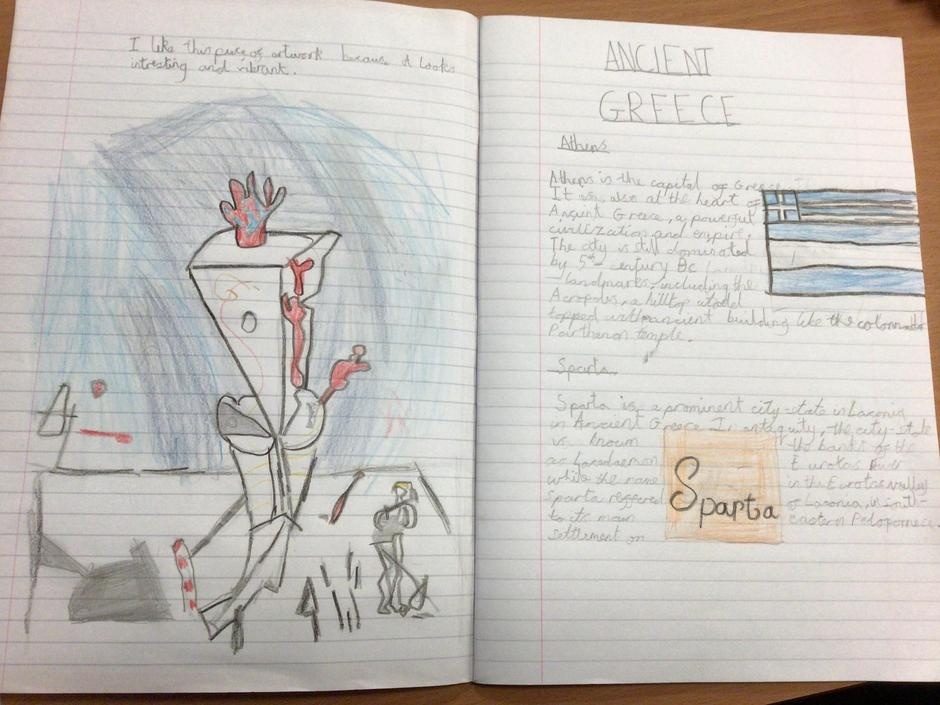 I like this piece of artwork because it looks
intresting and vibrant.
ANCIENT
GREECE
Athens
Athens is the capital of Greece.
It was also at the heart of
Ancient Greece, a powerful
civilization and empire.
The city is still dominated
by 5th century BC
landmarks, including the
Acropolis, a hilltop
topped with ancient building like the
Parthenon temple.
Sparta.
Sparta is a prominent city-state in Laconia
in Ancient Greece In antiquity, the city-state
is known
as Lacedaemon
while the name
Sparta reffered
to its main
settlement on
Sparta
the banks of the
Eurotas River
in the Eurotas valley
of Laconia, in south-
eastern